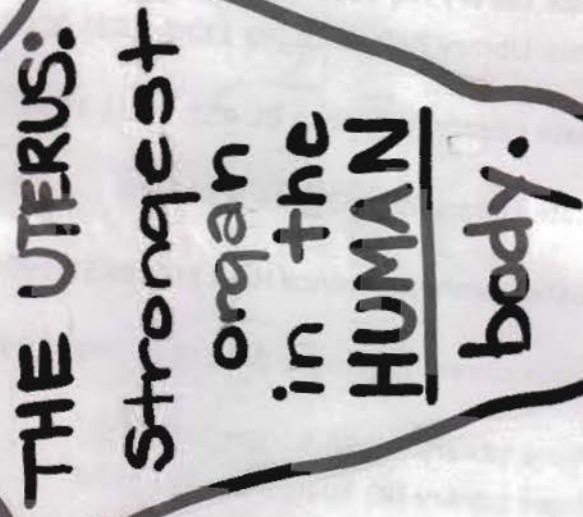 THE UTERUS:
strongest
organ
in the
HUMAN
body.